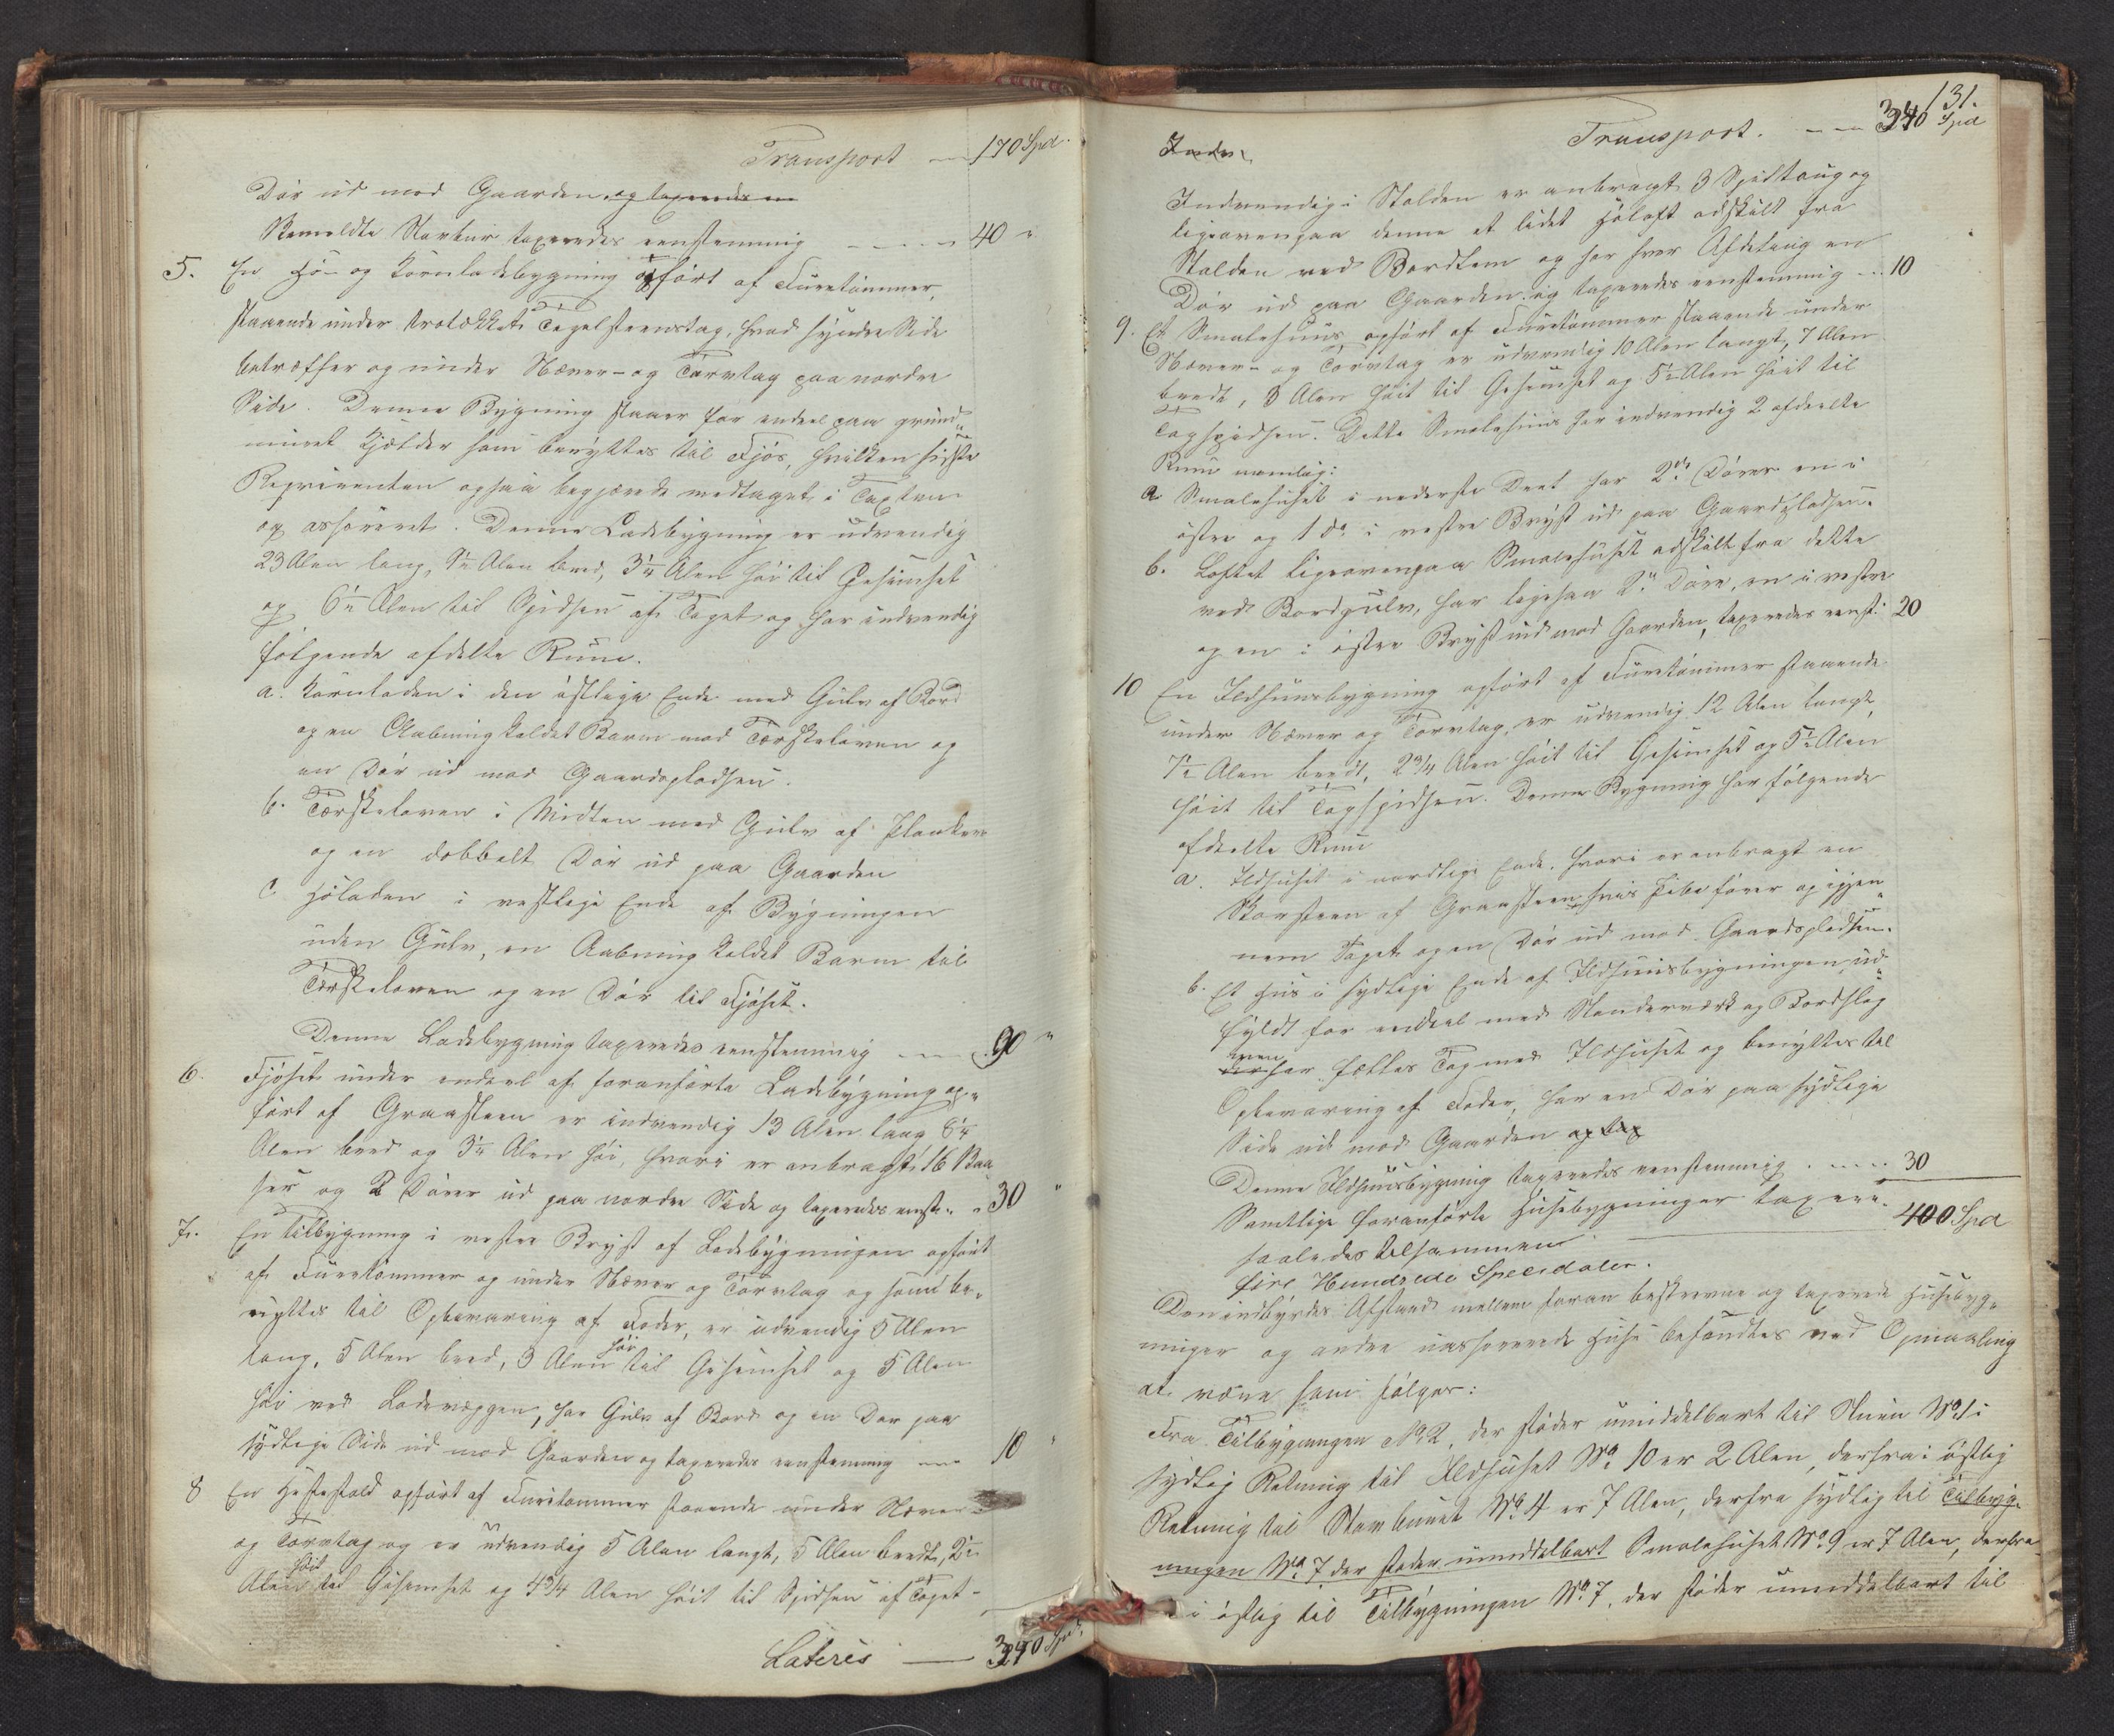 Transport — 170 Spd.
Dør ud mod Gaarden og taxeredes en
Bemeldte Stavbur taxeredes eenstemmig — 40 "
5. En Hø- og Kornladebygning opført af Furetømmer,
staaende under Tegelsteenstag, hvad syndre Side
betræffer og under Næver- og Torvtag paa nordre
Side. Denne Bygning staaer for endeel paa grund„
muret Kjelder som benyttes til Fjøs, hvilken sidste
Reqvirenten ogsaa begjærede medtaget i Taxten
og assureret. Denne Ladebygning er udvendig
23 Alen lang, 9½ Alen bred, 3¼ Alen høi til Gesimset
og 6½ Alen til Spidsen af Taget og har indvendig
følgende afdelte Rum.
a. Kornladen i den østlige Ende med Gulv af Bord
og en Aabning kaldet Barm mod Tærskeloven og
en Dør ud mod Gaardspladsen.
b. Tærskeloven i Midten med Gulv af Planker
og en dobbelt Dør ud paa Gaarden
c. Høladen i vestlige Ende af Bygningen
uden Gulv, en Aabning kaldet Barm til
Tærskeloven og en Dør til Fjøset.
Denne Ladebygning taxeredes eenstemmig — 90 "
6. Fjøset under endeel af foranførte Ladebygning op„
ført af Graasteen er indvendig 13 Alen lang 8¼
Alen bred og 3¼ Alen høi, hvori er anbragt 16 Baa„
ser og 2 Dører ud paa nordre Side og taxeredes eenst. " 30 "
7. En Tilbygning i vestre Bryst af Ladebygningen opført
af Furetømmer og under Næver og Torvtag og som be„
nyttes til Opbevaring af Foder, er udvendig 5 Alen
lang, 5 Alen bred, 3 Alen høi til Gesimset og 5 Alen
høi ved Ladevæggen, har Gulv af Bord og en Dør paa
sydlige Side ud mod Gaarden og taxeredes eenstemmig — 10 "
8 En Hestestald opført af Furetømmer staaende under Næver-
og Torvtag og er udvendig 5 Alen langt, 5 Alen bredt, 2½
Alen høit til Gesimset og 4¾ Alen høit til Spidsen af Taget -
Lateris — 340 Spd.
131.
Transport. — 340 Spd
Indv.
Indvendig i Stalden er anbragt 3 Spiltoug og
ligeovenpaa denne et lidet Høloft adskilt fra
Stalden ved Bordlem og har hver Afdeling en
Dør ud paa Gaarden og taxeredes eenstemmig — 10
9. Et Smalehuus, opført af Furetømmer staaende under
Næver- og Torvtag er udvendig 10 Alen langt, 7 Alen
bredt, 3 Alen høit til Gesimset og 5½ Alen høit til
Tagspidsen. Dette Smalehuus har indvendig 2 afdeelte
Rum nemlig:
a Smalehuset i nederste Deel har 2de Dører en i
østre og 1 do i vestre Bryst ud paa Gaardspladsen.
b. Loftet ligeovenpaa Smalehuset adskilt fra dette
ved Bordgulv, har ligesaa 2de Døre, en i vestre
og en i østre Bryst ud mod Gaarden, taxeredes eenst: 20
10 En Ildhuusbygning opført af Furetømmer staaende
under Næver og Torvtag, er udvendig 12 Alen langt,
7½ Alen bredt, 2¾ Alen høit til Gesimset og 5½ Alen
høit til Tagspidsen. Denne Bygning har følgende
afdeelte Rum
a. Ildhuset i nordlige Ende, hvori er anbragt en
Skorsteen af Graasteen, hvis Pibe fører op igjen„
nem Taget og en Dør ud mod Gaardspladsen.
b. Et Hus i sydlige Ende af Ildhuusbygningen, ud„
fyldt for endeel med Stenderværk og Bordslag
men har fælles Tag med Ildhuset og benyttes til
Opbevaring af Foder, har en Dør paa sydlige
Side ud mod Gaarden og tax
Denne Ildhuusbygning taxeredes eenstemmig — 30
Samtlige foranførte Husebygninger taxere- 400 Spd
saaledes tilsammen
fire Hundrede Speciedaler.
Den indbyrdes Afstand mellem foran beskrevne og taxerede Husebyg„
ninger og andre uassurerede Huse befandtes ved Opmaaling
at være som følger:
Fra Tilbygningen No. 2, der støder umiddelbart til Stuen No. 1 i
sydlig Retning til Ildhuset No. 10 er 2 Alen, derfra i østlig
Retning til Stavburet No. 4 er 7 Alen, derfra sydlig til Tilbyg-
ningen No. 7 der støder umiddelbart Smalehuset No. 9 er 7 Alen, derfra
i østlig til Tilbygningen No. 7, der støder umiddelbart til